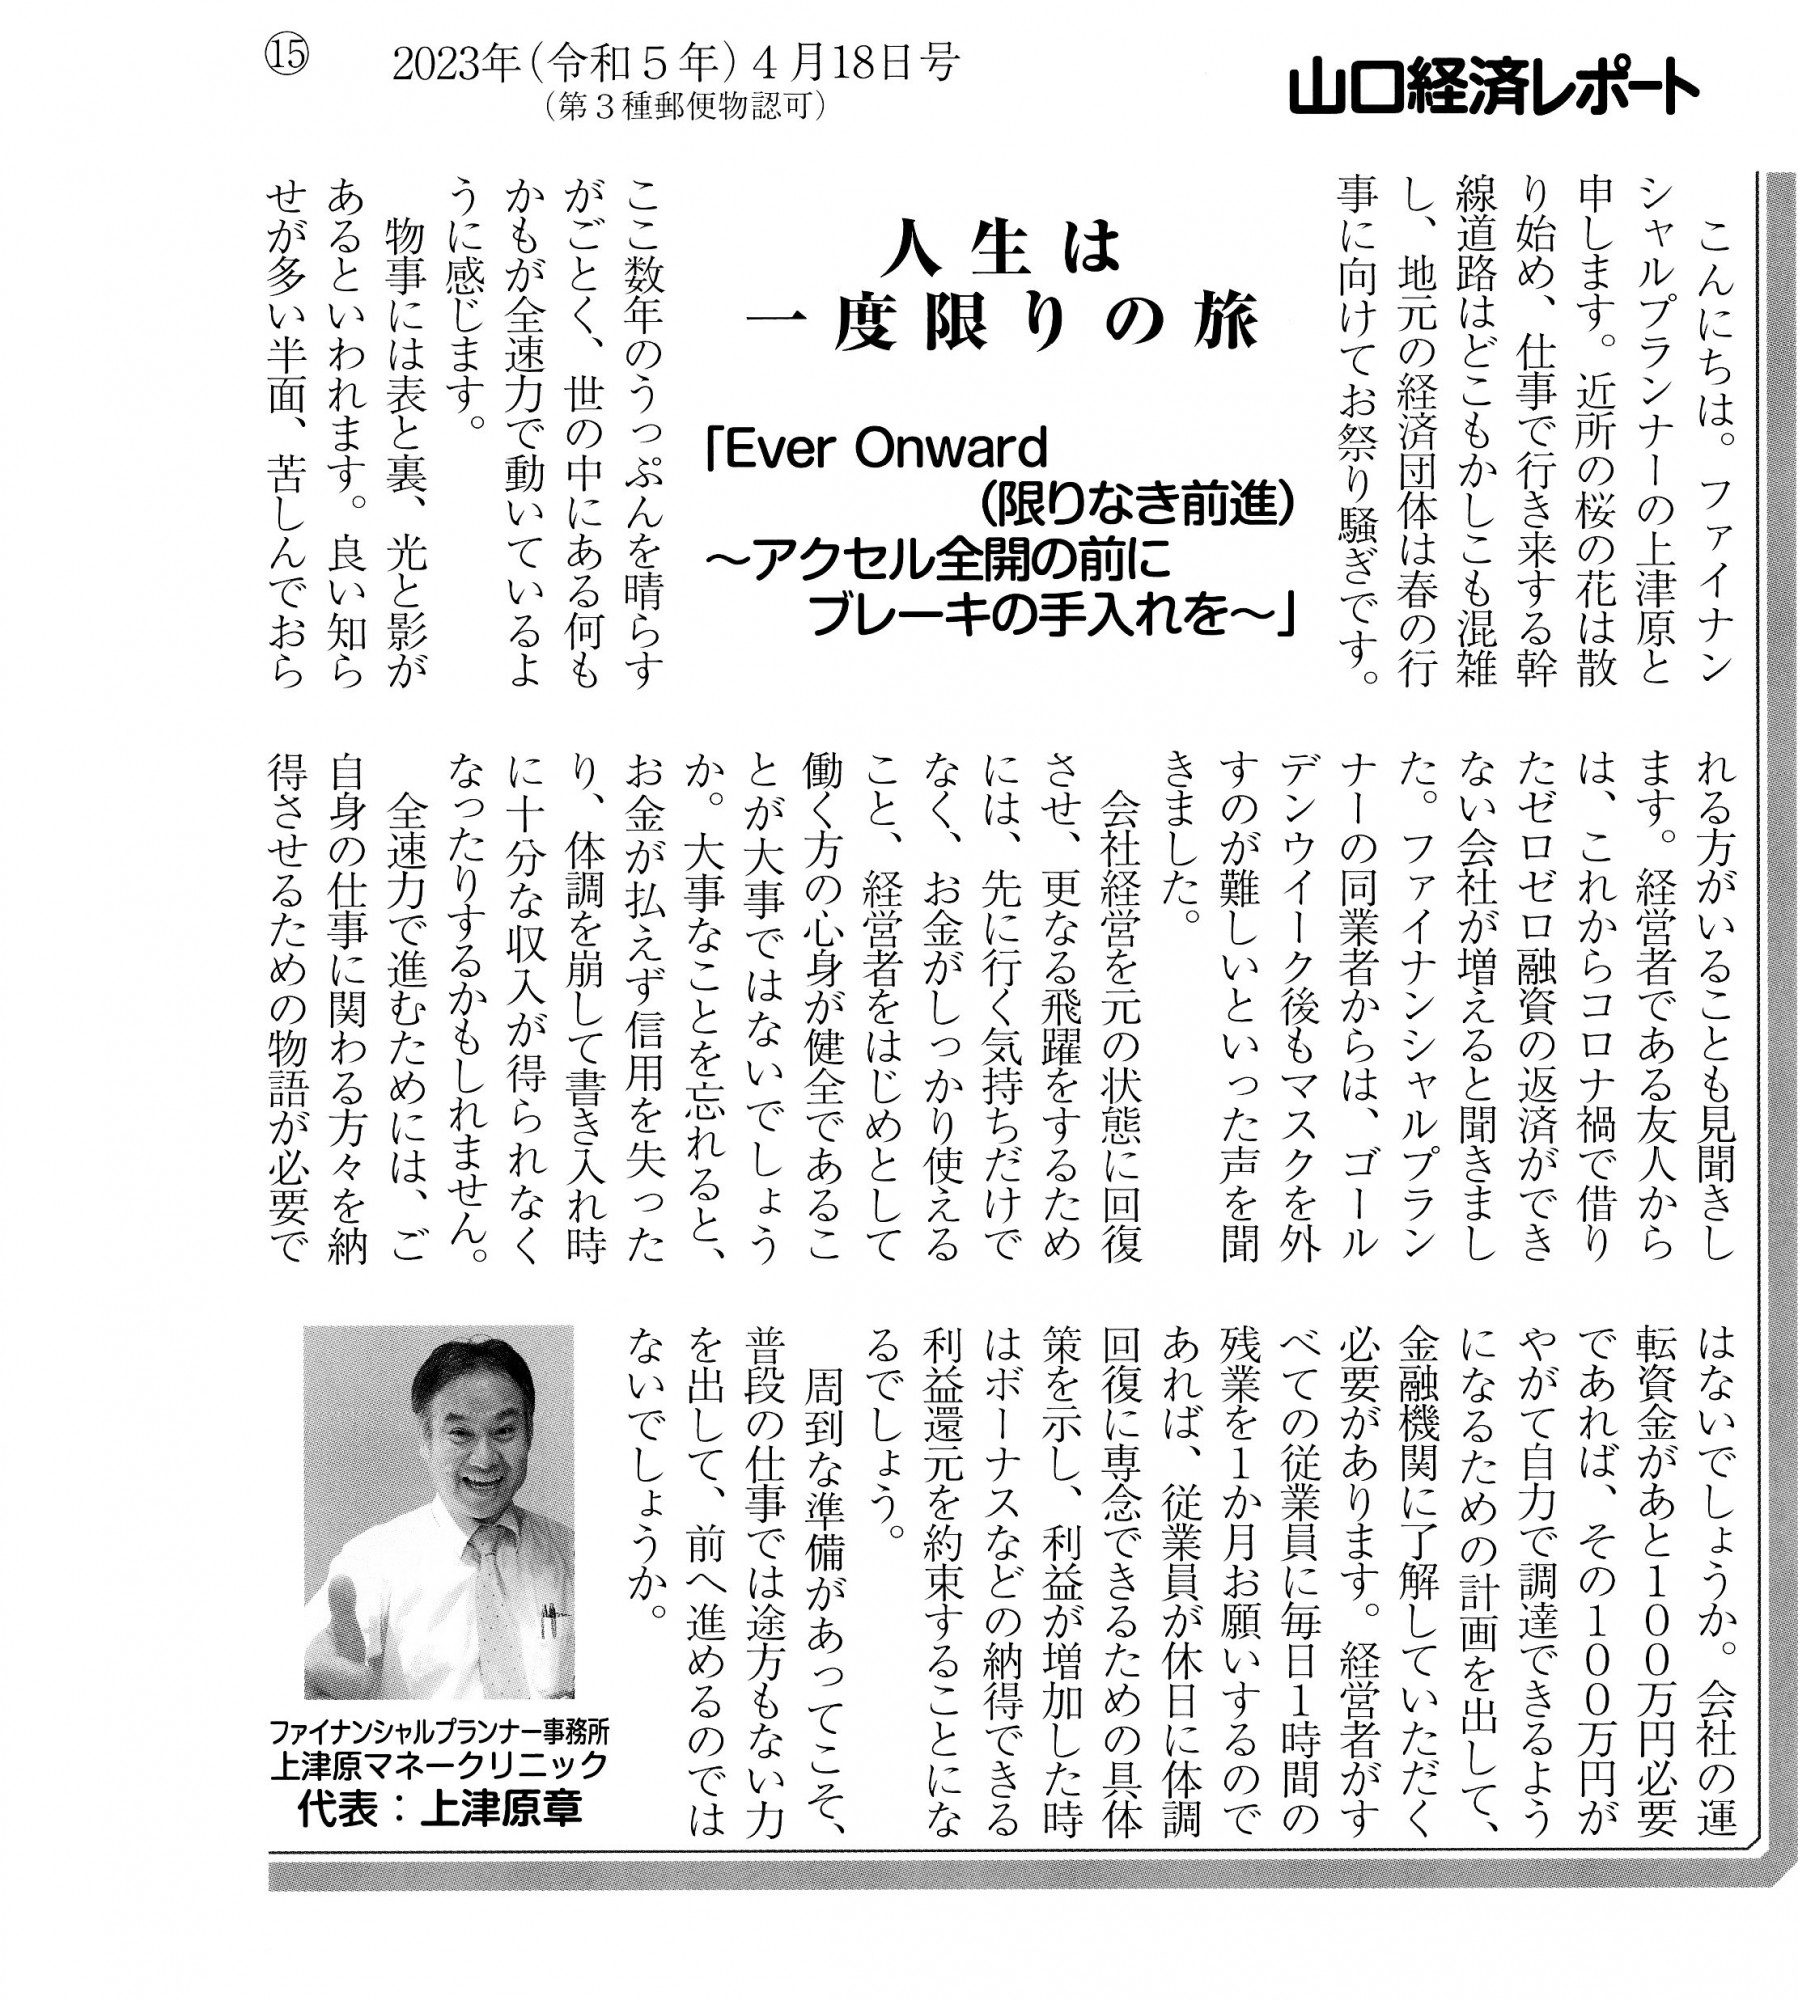 ⑮
2023年(令和5年)4月18日号
(第3種郵便物認可)
山口経済レポート
人生は
一度限りの旅
「Ever Onward
(限りなき前進)
～アクセル全開の前に
ブレーキの手入れを～」
こんにちは。ファイナン
シャルプランナーの上津原と
申します。近所の桜の花は散
り始め、仕事で行き来する幹
線道路はどこもかしこも混雑
し、地元の経済団体は春の行
事に向けてお祭り騒ぎです。
ここ数年のうっぷんを晴らす
がごとく、世の中にある何も
かもが全速力で動いているよ
うに感じます。
物事には表と裏、光と影が
あるといわれます。良い知ら
せが多い半面、苦しんでおら
れる方がいることも見聞きし
ます。経営者である友人から
は、これからコロナ禍で借り
たゼロゼロ融資の返済ができ
ない会社が増えると聞きまし
た。ファイナンシャルプラン
ナーの同業者からは、ゴール
デンウイーク後もマスクを外
すのが難しいといった声を聞
きました。
会社経営を元の状態に回復
させ、更なる飛躍をするため
には、先に行く気持ちだけで
なく、お金がしっかり使える
こと、経営者をはじめとして
働く方の心身が健全であるこ
とが大事ではないでしょう
か。大事なことを忘れると、
お金が払えず信用を失った
り、体調を崩して書き入れ時
に十分な収入が得られなく
なったりするかもしれません。
全速力で進むためには、ご
自身の仕事に関わる方々を納
得させるための物語が必要で
はないでしょうか。会社の運
転資金があと100万円必要
であれば、その100万円が
やがて自力で調達できるよう
になるための計画を出して、
金融機関に了解していただく
必要があります。経営者がす
べての従業員に毎日1時間の
残業を1か月お願いするので
あれば、従業員が休日に体調
回復に専念できるための具体
策を示し、利益が増加した時
はボーナスなどの納得できる
利益還元を約束することにな
るでしょう。
周到な準備があってこそ、
普段の仕事では途方もない力
を出して、前へ進めるのでは
ないでしょうか。
ファイナンシャルプランナー事務所
上津原マネークリニック
代表：上津原章